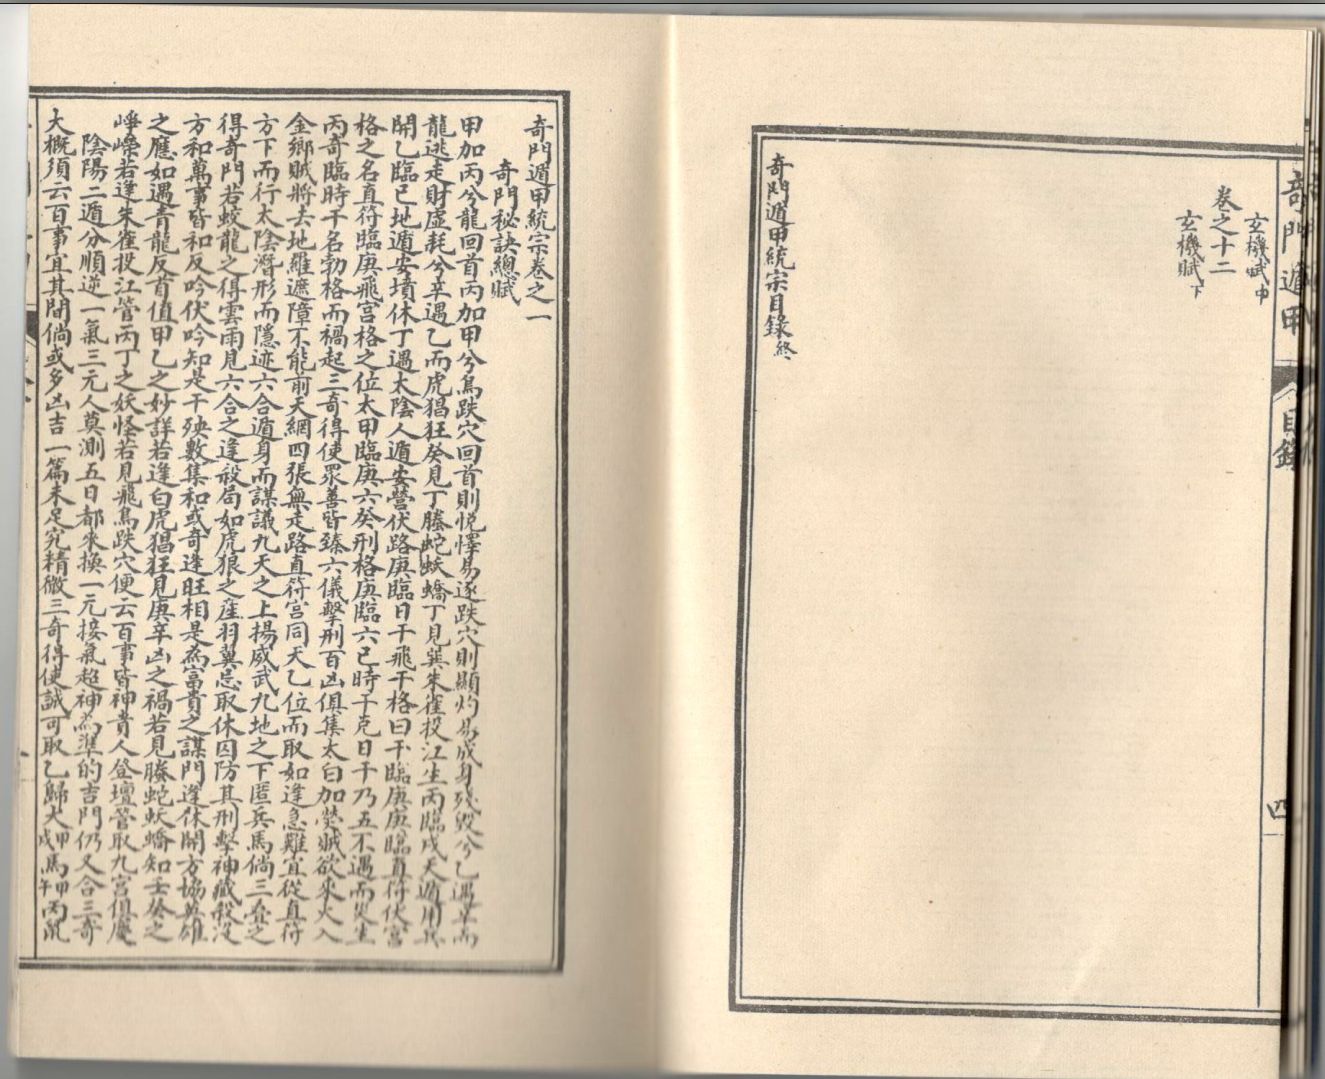 奇門遁甲
目錄
四
玄機賦中
卷之十二
玄機賦下
奇門遁甲統宗目錄終
奇門遁甲統宗卷之一
奇門秘訣總賦
甲加丙兮龍回首丙加甲兮鳥跌穴回首則悅懌易逐跌穴則顯灼易成身殘毀兮乙遇辛而
龍逃走財虛耗兮辛遇乙而虎猖狂癸見丁螣蛇妖矯丁見癸朱雀投江生丙臨戊天遁用兵
開乙臨已地遁安墳休丁遇太陰人遁安營伏路庚臨日干飛干格曰干臨庚庚臨直符伏宮
格之名直符臨庚飛宮格之位太甲臨庚六癸刑格庚臨六已時干克日干乃五不遇而災生
丙奇臨時干名勃格而禍起三奇得使眾善皆臻六儀擊刑百凶俱集太白加熒賊欲來火入
金鄉賊將去地羅遮障不能前天網四張無走路直符宮同天乙位而取如逢急難宜從直符
方下而行太陰潛形而隱迹六合遁身而謀議九天之上揚威武九地之下匿兵馬倘三奇之
得奇門若蛟龍之得雲雨見六合之逢殺局如虎狼之產羽翼忌取休囚防其刑擊神藏殺沒
方和萬事皆和反吟伏吟知是干殃數集和或奇逢旺相是為富貴之謀門逢休開方協英雄
之應如遇青龍反首值甲乙之妙詳若逢白虎猖狂見庚辛凶之禍若見螣蛇妖矯知壬癸之
崢嶸若逢朱雀投江管丙丁之妖怪若見飛鳥跌穴便云百事皆神貴人登壇管取九宮俱慶
陰陽二遁分順逆一氣三元人莫測五日都來換一元接氣超神為準的吉門仍又合三奇
大概須云百事宜其間倘或多凶吉一篇未足究精微三奇得使誠可取乙歸犬甲戌馬甲午丙鼠